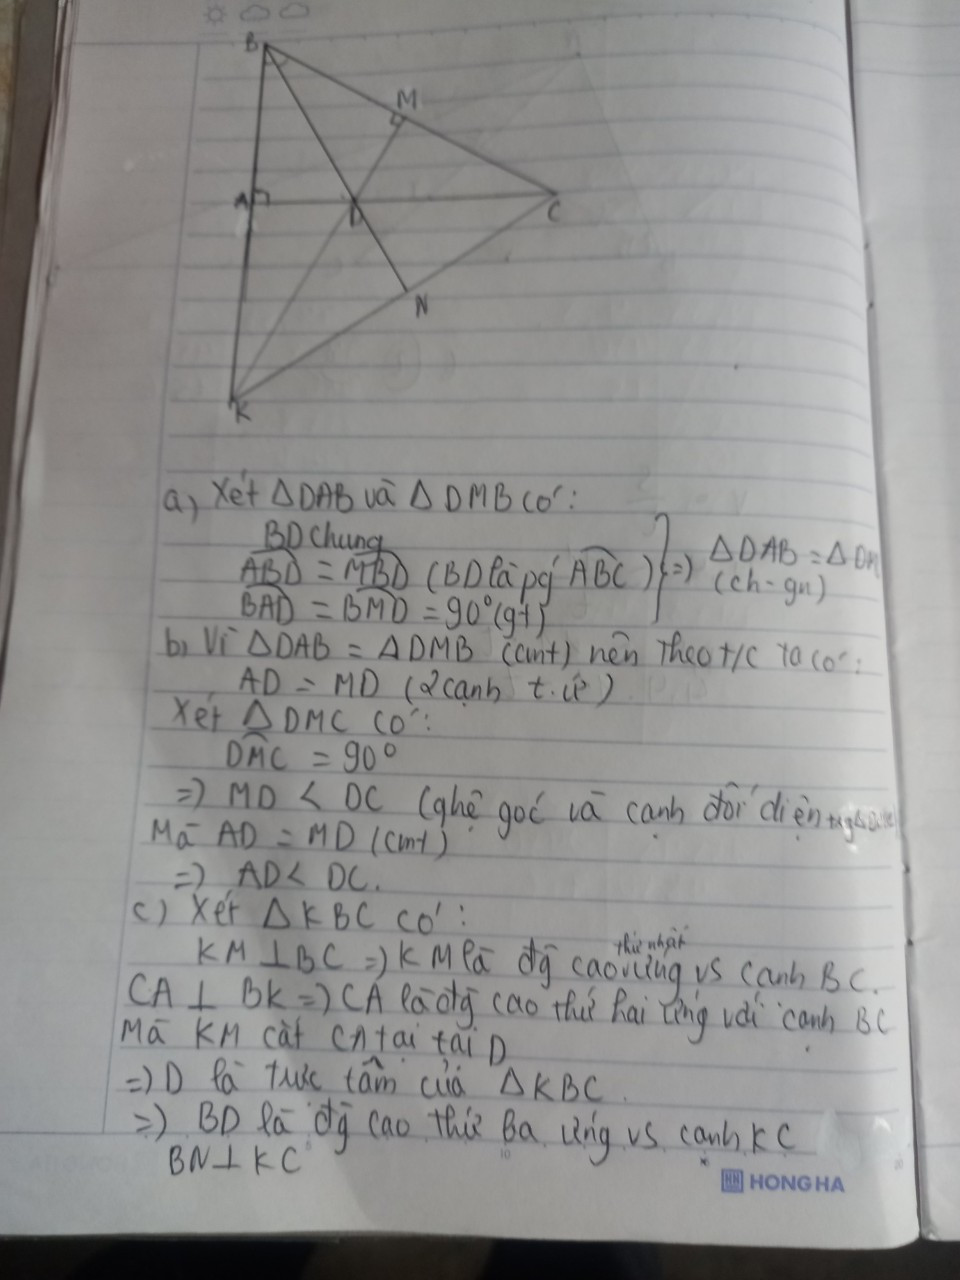 B
M
A
D
C
N
K
a, Xét ΔDAB và ΔDMB có:
BD chung
ABD = MBD (BD là pg ABC) } => ΔDAB = ΔDM
BAD = BMD = 90° (gt)
(ch-gn)
b, Vì ΔDAB = ΔDMB (cmt) nên theo t/c ta có:
AD = MD (2 cạnh t.ứ)
Xét ΔDMC có:
DMC = 90°
=> MD < DC (qhệ goć và cạnh đối diện
Mà AD = MD (cmt)
=> AD < DC.
c) Xét ΔKBC có:
thứ nhất
KM ⊥ BC => KM là đg cao ứng vs cạnh BC.
CA ⊥ BK => CA là đg cao thứ hai ứng với cạnh BC
Mà KM cắt CA tại tại D
=> D là trực tâm của ΔKBC.
=> BD là đg cao thứ Ba ứng vs cạnh KC
BN ⊥ KC
HH HONG HA